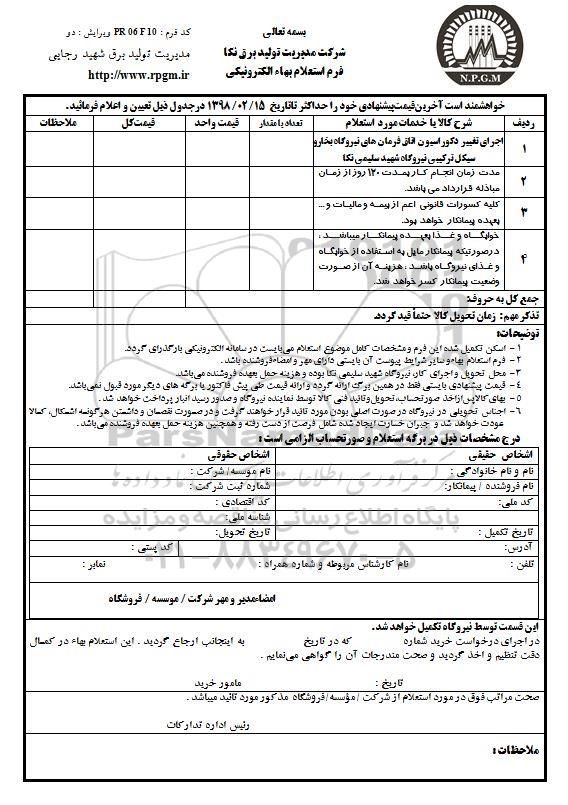 بسمه تعالی
شرکت مدیریت تولید برق نکا
فرم استعلام بهاء الکترونیکی
کد فرم : PR 06 F 10 ویرایش : دو
مدیریت تولید برق شهید رجایی
http://www.rpgm.ir
N.P.G.M
خواهشمند است آخرین قیمت پیشنهادی خود را حداکثر تا تاریخ ۱۳۹۸/۰۲/۱۵ درجدول ذیل تعیین و اعلام فرمائید.
ردیف شرح کالا یا خدمات مورد استعلام تعداد یا مقدار قیمت واحد قیمت کل ملاحظات
۱ اجرای تغییر دکوراسیون اتاق فرمان های نیروگاه بخار و سیکل ترکیبی نیروگاه شهید سلیمی نکا
۲ مدت زمان انجام کار بمدت ۱۲۰ روز از زمان مبادله قرارداد می باشد.
۳ کلیه کسورات قانونی اعم از بیمه و مالیات و... بعهده پیمانکار خواهد بود.
۴ خوابگاه و غذا بعهده پیمانکار میباشد ، درصورتیکه پیمانکار مایل به استفاده از خوابگاه و غذای نیروگاه باشد ، هزینه آن از صورت وضعیت پیمانکار کسر خواهد شد.
جمع کل به حروف:
تذکر مهم: زمان تحویل کالا حتماً قید گردد.
توضیحات:
۱ – اسکن تکمیل شده این فرم و مشخصات کامل موضوع استعلام می‌بایست در سامانه الکترونیکی بارگذاری گردد.
۲ – فرم استعلام بهاء و سایر شرایط پیوست آن بایستی دارای مهر و امضاء فروشنده باشد.
۳ – محل تحویل و اجرای کار، نیروگاه شهید سلیمی نکا بوده و هزینه حمل بعهده فروشنده می‌باشد.
۴ – قیمت پیشنهادی بایستی فقط در همین برگ ارائه گردد و ارائه قیمت طی پیش فاکتور یا برگه های دیگر مورد قبول نمی‌باشد.
۵ – بهای کالا پس از اخذ صورتحساب، تحویل و تائید فنی کالا توسط نماینده نیروگاه و صدور رسید انبار پرداخت خواهد شد.
۶ – اجناس تحویلی در نیروگاه در صورت اصلی بودن مورد تائید قرار خواهند گرفت و در صورت نقصان و داشتن هرگونه اشکال، کالا عودت خواهد شد و جبران خسارت ایجاد شده شامل فرصت از دست رفته و همچنین هزینه حمل بعهده فروشنده می‌باشد.
درج مشخصات ذیل در برگه استعلام و صورتحساب الزامی است :
اشخاص حقیقی اشخاص حقوقی
نام و نام خانوادگی : نام موسسه/ شرکت :
نام فروشنده / پیمانکار: شماره ثبت شرکت :
کد ملی: کد اقتصادی :
شناسه ملی:
تاریخ تکمیل : تاریخ تحویل:
آدرس: کد پستی :
تلفن : نام کارشناس مربوطه و شماره همراه : نمابر :
امضاء مدیر و مهر شرکت / موسسه / فروشگاه
این قسمت توسط نیروگاه تکمیل خواهد شد.
در اجرای درخواست خرید شماره که در تاریخ به اینجانب ارجاع گردید . این استعلام بهاء در کمال
دقت تنظیم و اخذ گردید و صحت مندرجات آن را گواهی می‌نمایم .
تاریخ : مامور خرید
صحت مراتب فوق در مورد استعلام از شرکت / مؤسسه/ فروشگاه مذکور مورد تائید میباشد .
رئیس اداره تدارکات
ملاحظات :
ParsNamadData
پایگاه اطلاع رسانی مناقصه و مزایده
۰۲۱-۸۸۳۴۹۶۷۰-۵